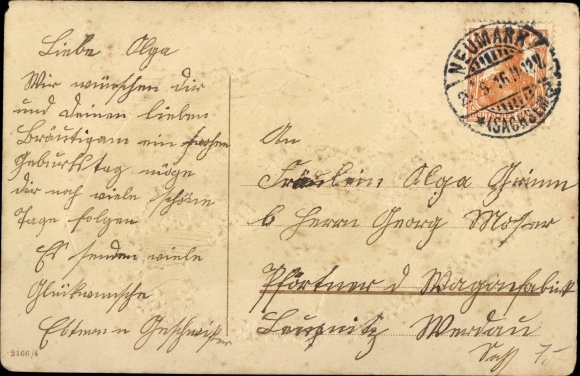 Liebe Olga
Wir wünschen dir
und deinen lieben
Bräutigam ein frohen
Geburtstag möge
dir noch viele schöne
Tage folgen
Es senden viele
Glückwünsche
Eltern u Geschwister
2166/4
NEUMARK
(SACHSEN)
An
Fräulein Olga Grimm
b Herrn Georg Moser
Pförtner d Waganfabrik
Leupnitz Werdau
Sachs
7,-